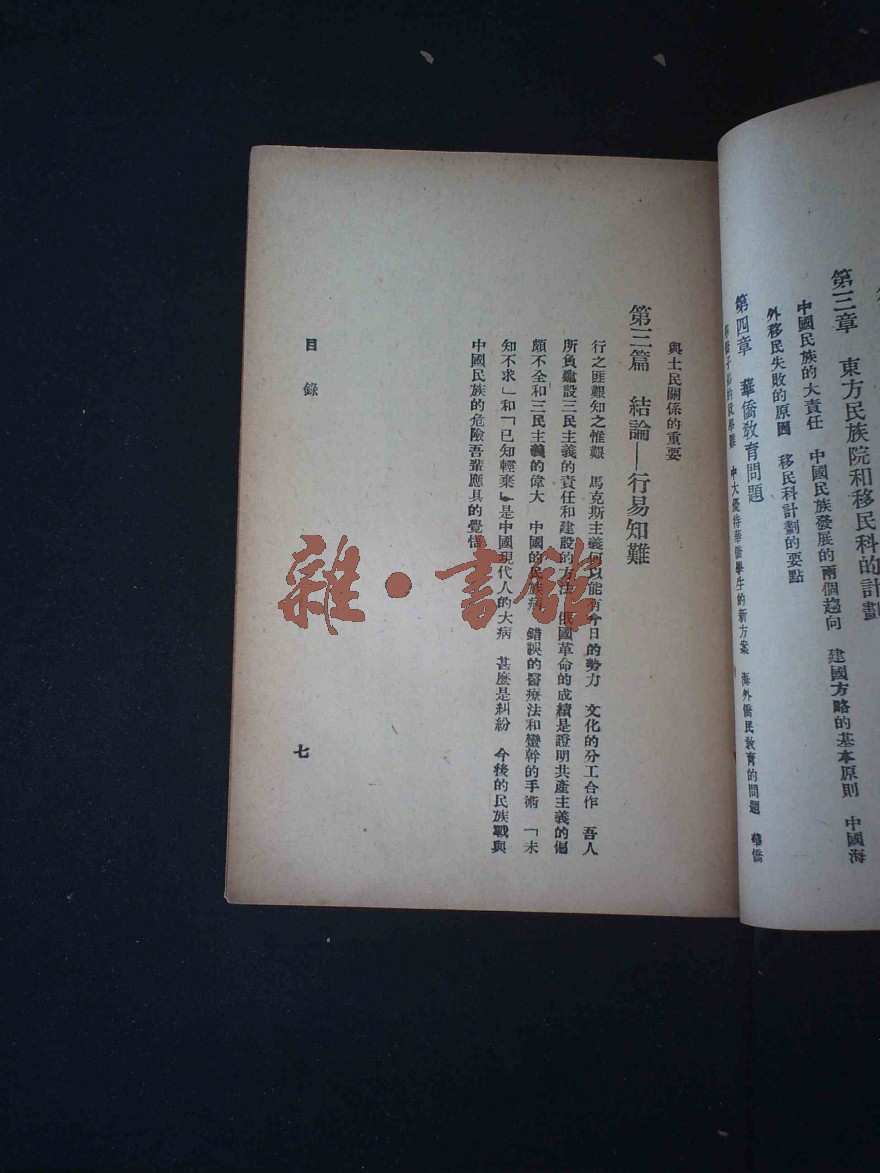 第三章　東方民族院和移民科的計劃
中國民族的大責任　中國民族發展的兩個趨向　建國方略的基本原則　中國海
外移民失敗的原因　移民科計劃的要點
第四章　華僑教育問題
子弟的就學難　中大優待華僑學生的新方案　海外僑民教育的問題　華僑
與土民關係的重要
第三篇　結論——行易知難
行之匪艱知之惟艱　馬克斯主義何以能有今日的勢力　文化的分工合作　吾人
所負建設三民主義的責任和建設的方法　俄國革命的成績是證明共產主義的偏
頗不全和三民主義的偉大　中國的民族病　錯誤的醫療法和蠻幹的手術　「未
知不求」和「已知輕棄」是中國現代人的大病　甚麼是糾紛　今後的民族戰與
中國民族的危險吾輩應具的覺悟
目錄
七
雜·書館